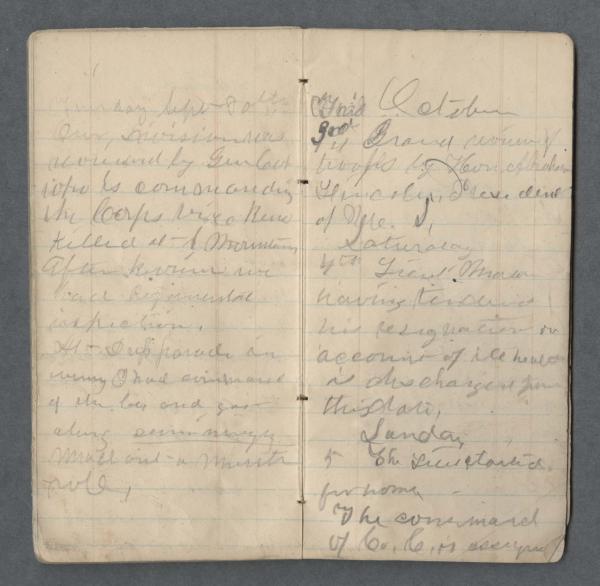 Sunday Sept 30th
Our Division was
reviewed by Gen Cox
who is commanding
the Corps vice Reno
Killed at S Mountain
After review we
had regimental
inspection.
At Dress parade in
evening I had command
of the Co, and got
along
Made out a Muster
roll,
October
Frid
3rd
A Grand review of
troops by Hon Abraham
Lincoln, President
of the U,
Saturday
4th Lieut Mason
having tendered
his resignation on
account of ill health
is discharged from
this date,
Sunday
5 The Lieut started
for home
The command
of Co. C. is assigned